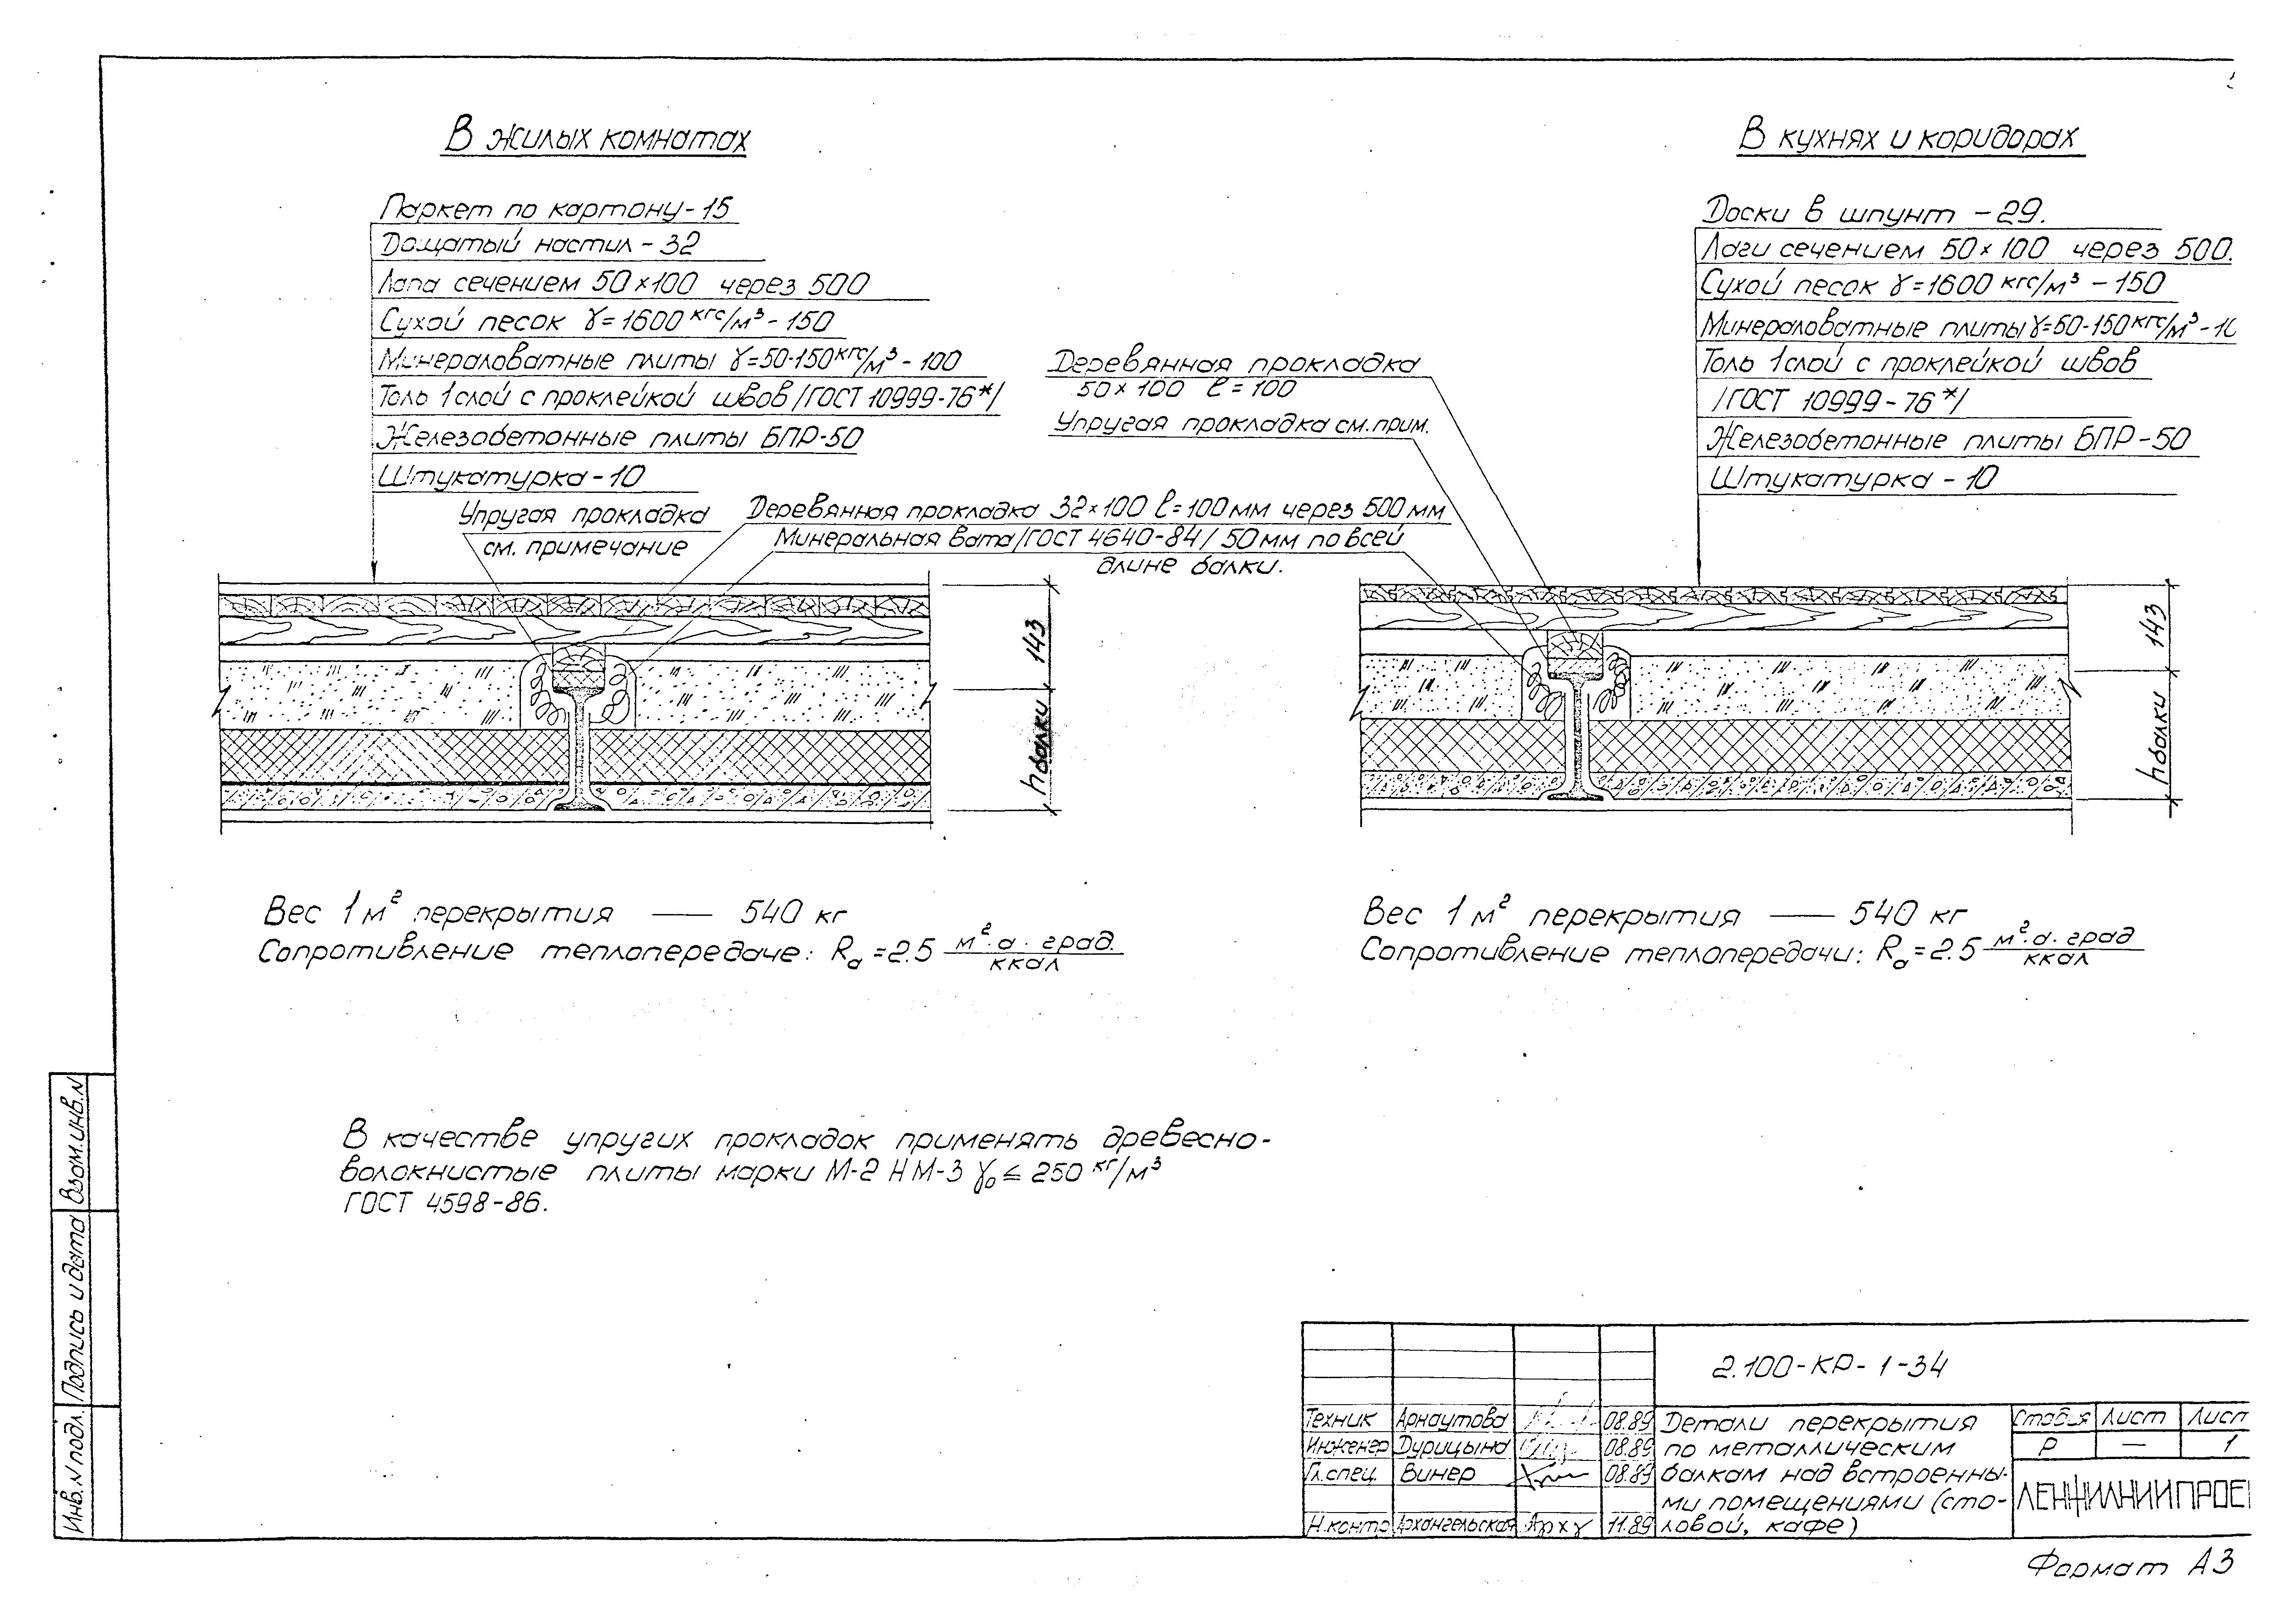 В жилых комнатах
Паркет по картону-15
Дощатый настил-32
Лага сечением 50×100 через 500
Сухой песок γ=1600 кгс/м³-150
Минераловатные плиты γ=50-150кгс/м³-100
Толь 1слой с проклейкой швов/ГОСТ 10999-76*/
Железобетонные плиты БПР-50
Штукатурка-10
Упругая прокладка
см. примечание
Деревянная прокладка
50×100 ℓ=100
Упругая прокладка см.прим.
Деревянная прокладка 32×100 ℓ=100мм через 500мм
Минеральная вата/ГОСТ 4640-84/50мм по всей
длине балки.
143
hбалки
В кухнях и коридорах
Доски в шпунт -29.
Лаги сечением 50×100 через 500.
Сухой песок γ=1600 кгс/м³ -150
Минераловатные плиты γ=50-150кгс/м³-10
Толь 1слой с проклейкой швов
/ГОСТ 10999-76*/
Железобетонные плиты БПР-50
Штукатурка-10
143
hбалки
Вес 1м² перекрытия — 540 кг
Сопротивление теплопередаче: Rо=2.5 м².а.град./ккал
Вес 1м² перекрытия — 540 кг
Сопротивление теплопередачи: Rо=2.5 м².а.град/ккал
В качестве упругих прокладок применять древесно-
волокнистые плиты марки М-2 НМ-3 γ₀≤250 кг/м³
ГОСТ 4598-86.
Взам.инв.N
Подпись и дата
Инв.N подл.
2.100-КР-1-34
Техник Арнаутова 08.89
Инженер Дурицына 08.89
Гл.спец. Винер 08.89
Н.контр Архангельская Арх 11.89
Детали перекрытия
по металлическим
балкам над встроенны-
ми помещениями (сто-
ловой, кафе)
Стадия Лист Лист
Р — 1
ЛЕНЖИЛНИИПРОЕ
Формат А3